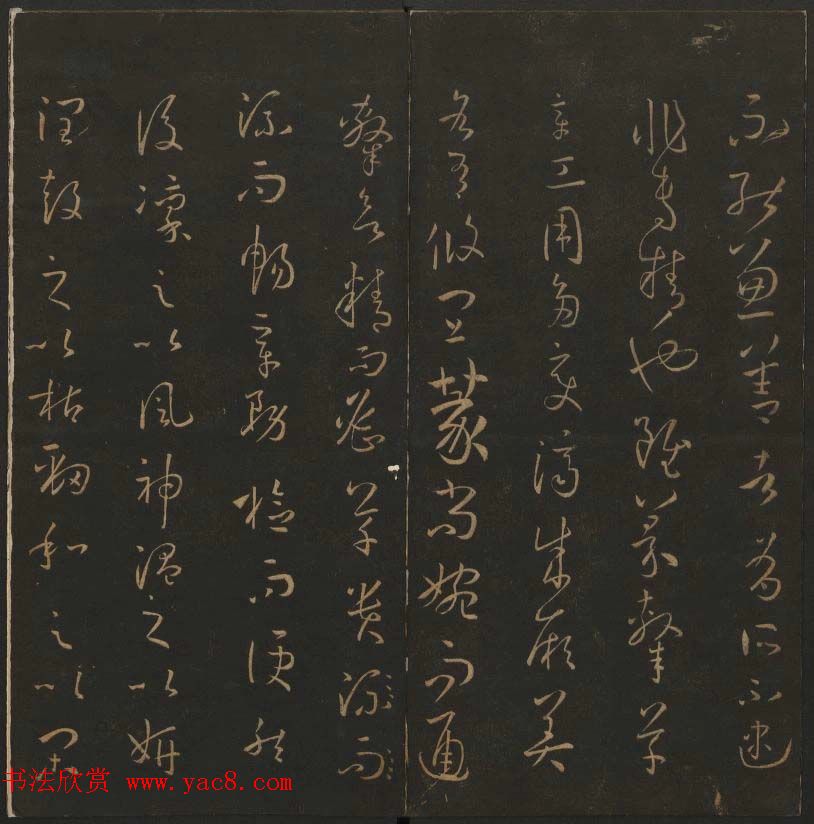 不能兼善者有所不逮
非專精也雖篆隸草
章工用多變濟成厥美
各有攸宜篆尚婉而通
隸欲精而密草貴流而
流而暢章務檢而便然
後凜之以風神溫之以妍
潤鼓之以枯勁和之以閑
书法欣赏 www.yac8.com